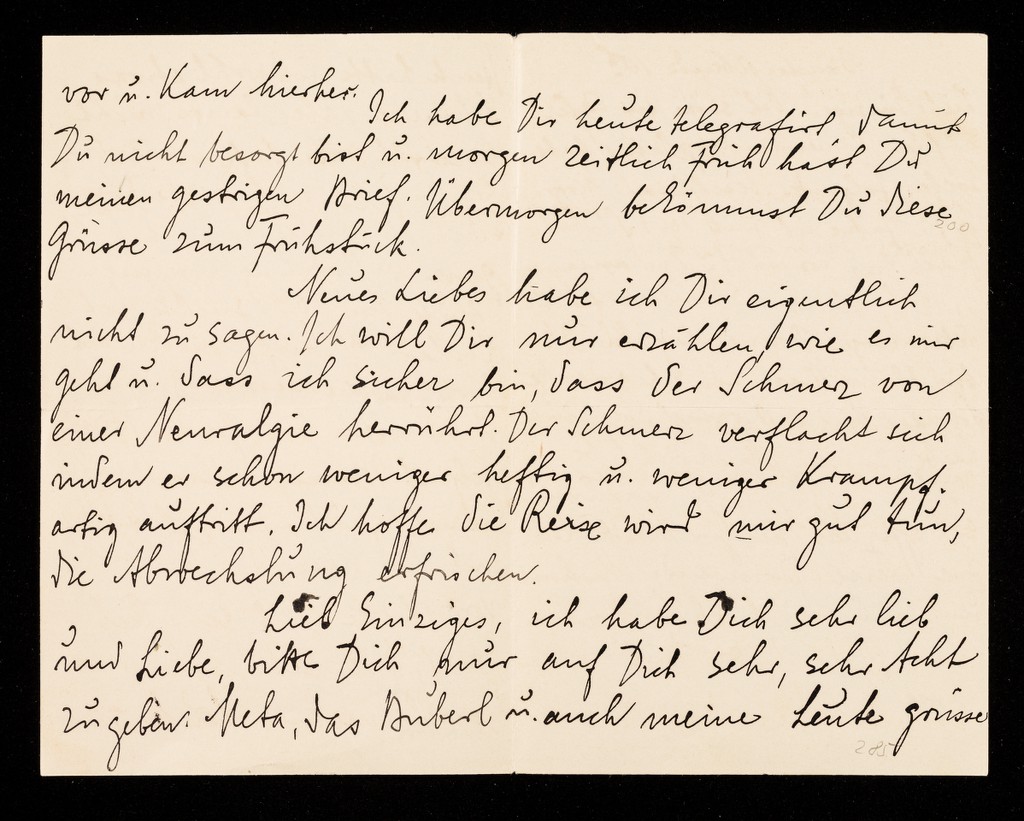 vor u. Kam hierher.
Ich habe Dir heute telegrafirt, damit
Du nicht besorgt bist u. morgen zeitlich Früh hast Du
meinen gestrigen Brief. Übermorgen bekömmst Du diese
200
Grüsse zum Frühstück.
Neues Liebes habe ich Dir eigentlich
nicht zu sagen. Ich will Dir nur erzählen, wie es mir
geht u. dass ich sicher bin, dass der Schmerz von
einer Neuralgie herrührt. Der Schmerz verflacht sich
indem er schon weniger heftig u. weniger Krampf-
artig auftritt. Ich hoffe die Reise wird mir gut tun,
die Abwechslung erfrischen.
Lieb Einziges, ich habe Dich sehr lieb
und Liebe, bitte Dich nur auf Dich sehr, sehr Acht
zu geben. Meta, das Buberl u. auch meine Leute grüsse
285